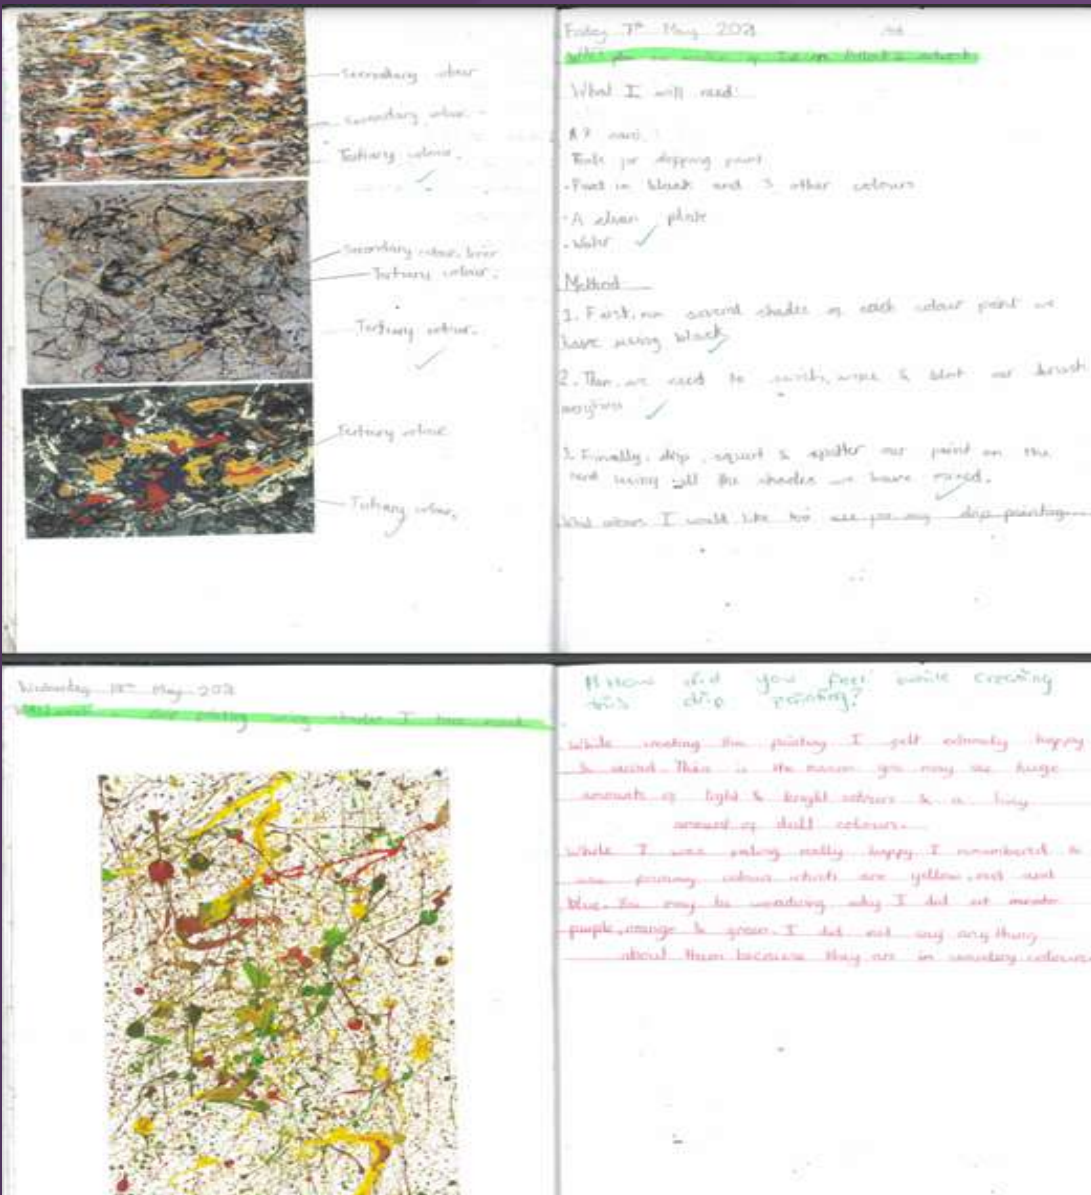 Secondary colour
Secondary colour.
Tertiary colour.
Secondary colour.
Tertiary colour.
Tertiary colour.
Tertiary colour
Tertiary colour.
Friday 7th May 2021
artwork
What I will need:
Tools for dripping paint
- Paint in black and 3 other colours
- A clean plate
- Water
Method
1. First, mix several shades of each colour paint we
have using black
2. Then, we need to & blot our brush
3. Finally, drip, squirt & spatter our paint on the
card using all the shades we have mixed.
What colours I would like too use for my drip painting
Wednesday May 2021
drip painting using shades I have mixed
How did you feel while creating
this drip painting?
While creating this painting I felt extremely happy
& excited. This is the reason you may see huge
amounts of light & bright colours & a tiny
amount of dull colours.
While I was feeling really happy I remembered to
use primary colours which are yellow, red and
blue. You may be wondering why I did not
purple, orange & green. I did not say anything
about them because they are in secondary colours